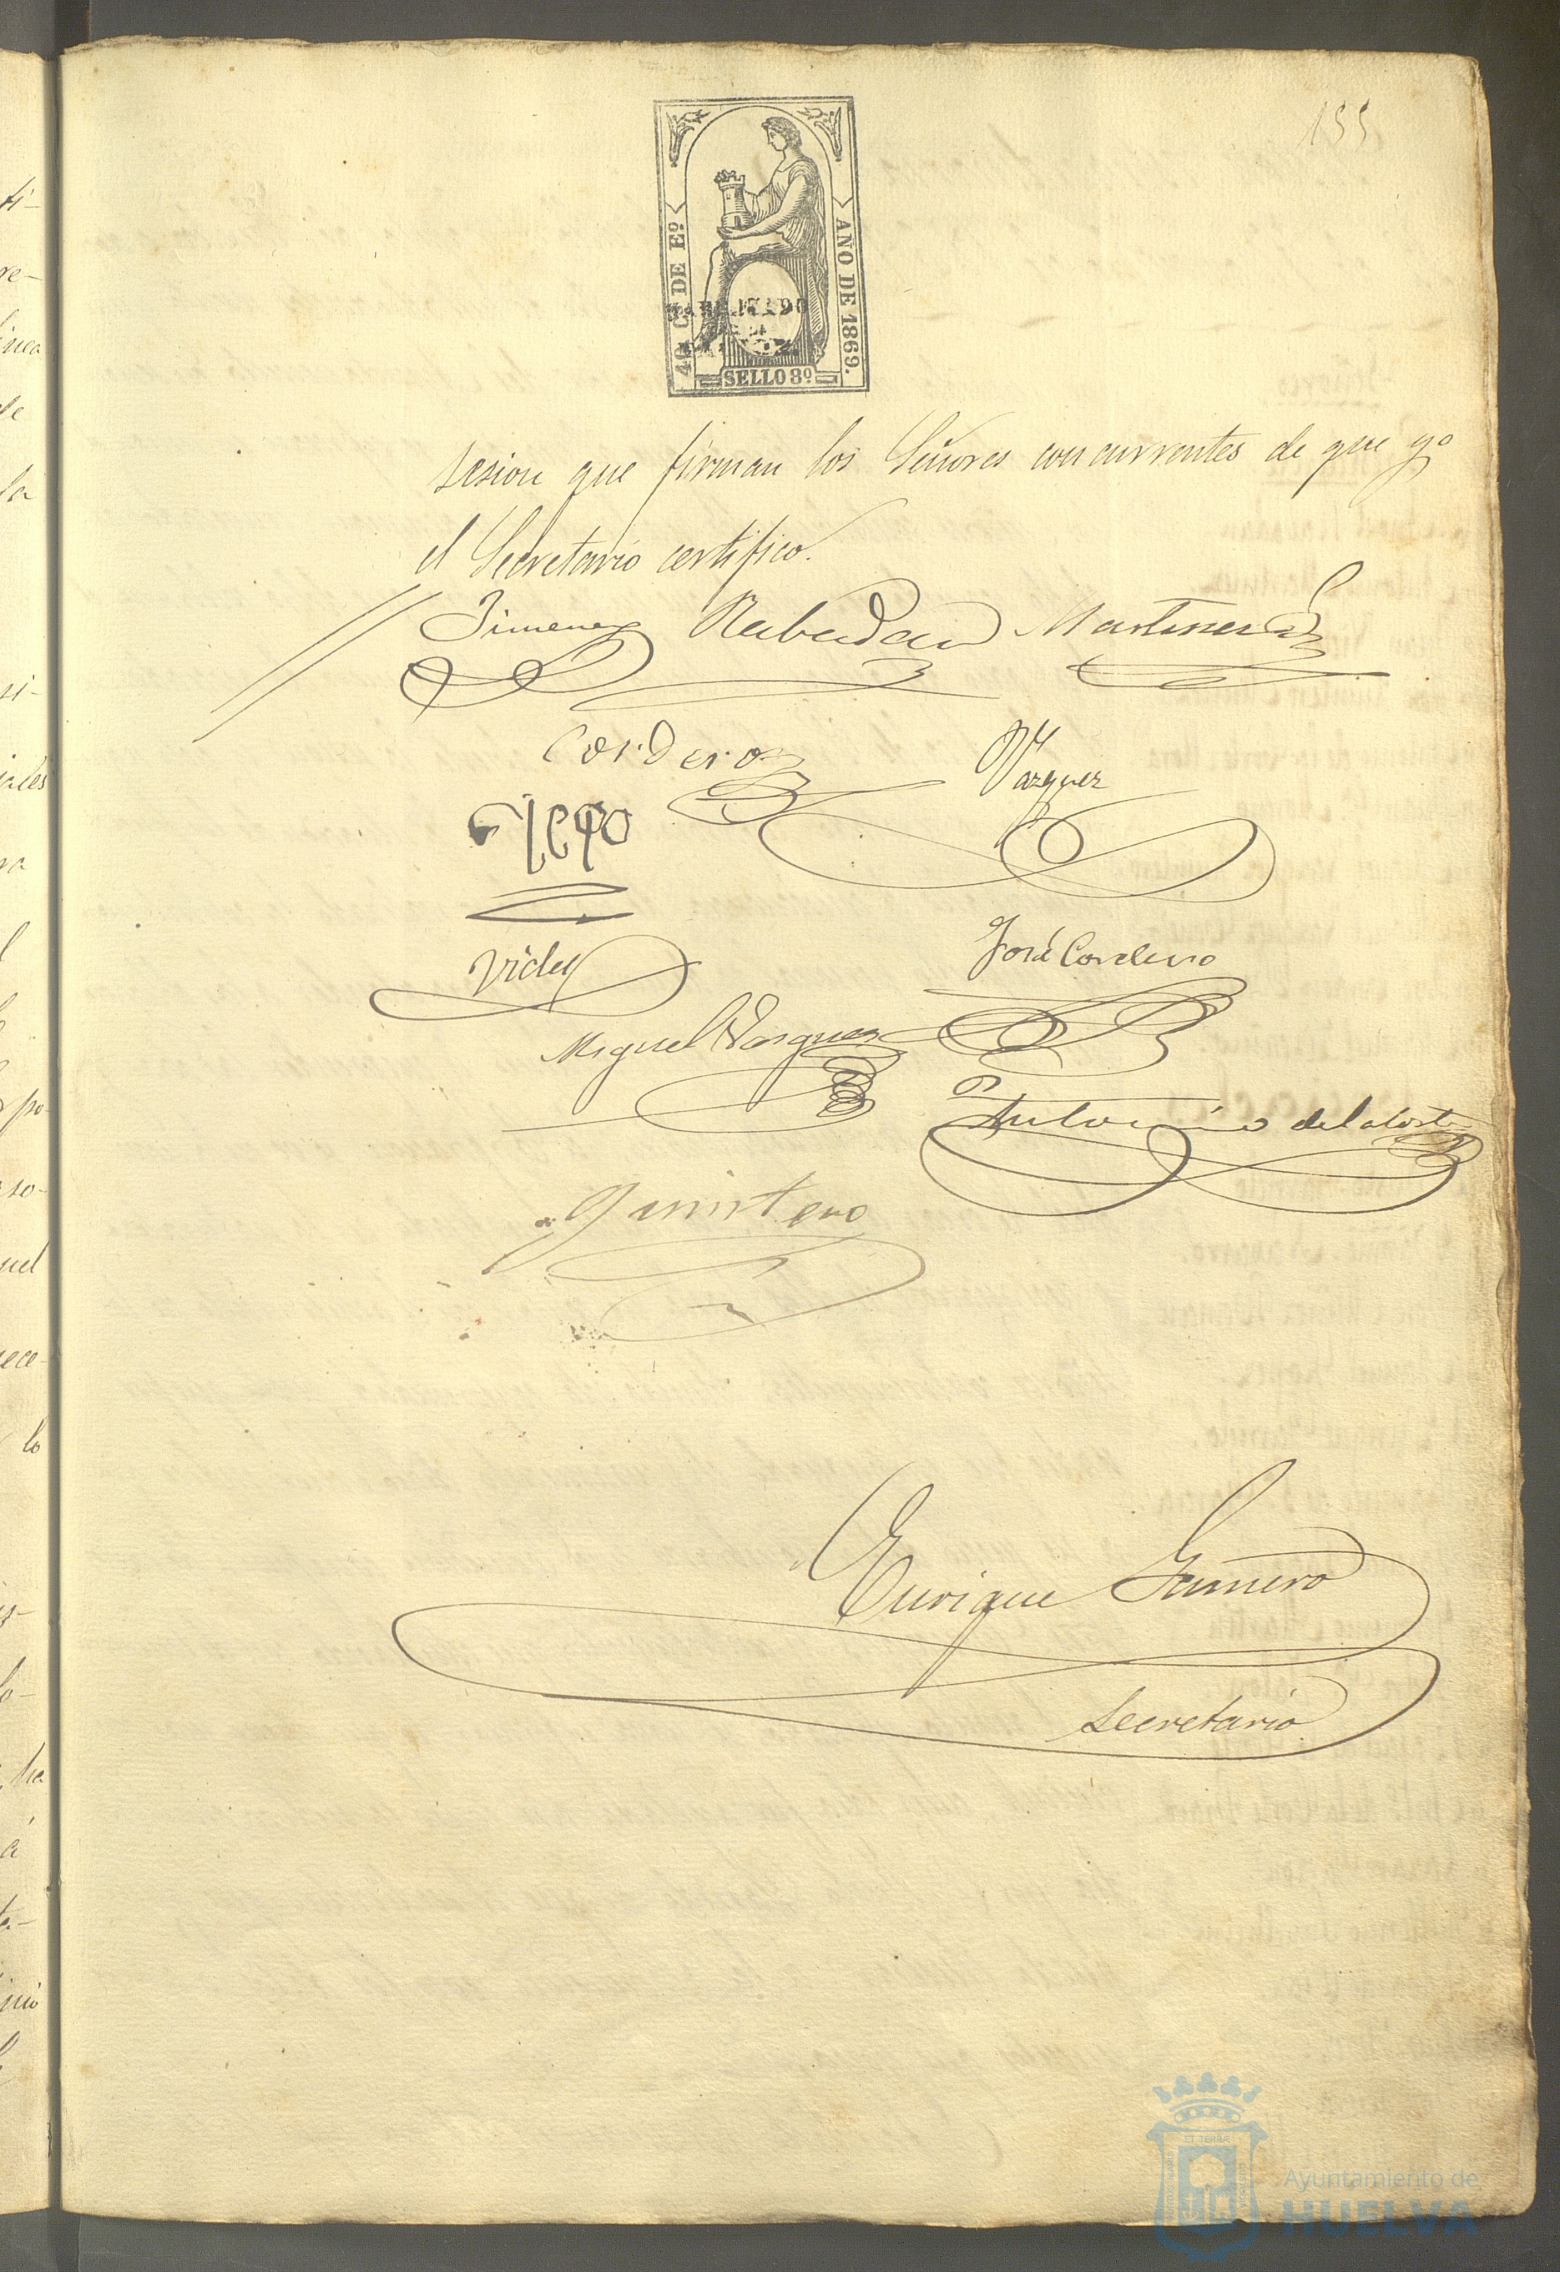 155
40 C.s DE E.º
AÑO DE 1869.
HABILITADO
SELLO 8º
sesion que firman los Señores concurrentes de que yo
el Secretario certifico.
Jimenez Rabadan Martinez
Cordero Vazquez
José Cordero
Miguel Vazquez
Antonio de la Corte
Quintero
Enrique Gamero
Secretario
ET TERRÆ
Ayuntamiento de
HUELVA